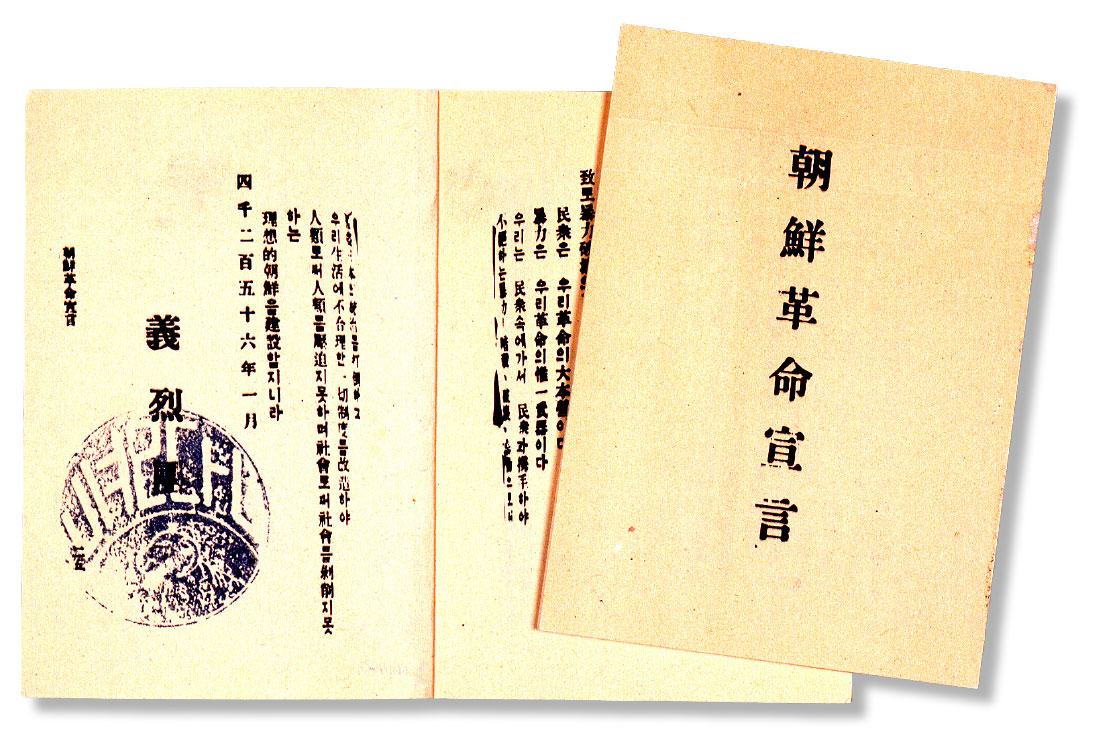 朝鮮革命宣言
民衆은 우리革命의大本營이다
暴力은 우리革命의惟一武器이다
우리는 民衆속에가서 民衆과携手하야
不絶하는暴力
打倒하고
우리生活에不合理한一切制度를改造하야
人類로써人類를壓迫지못하며社會로써社會를剝削지못
하는
理想的朝鮮을建設할지니라
四千二百五十六年一月
義烈團
朝鮮革命宣言